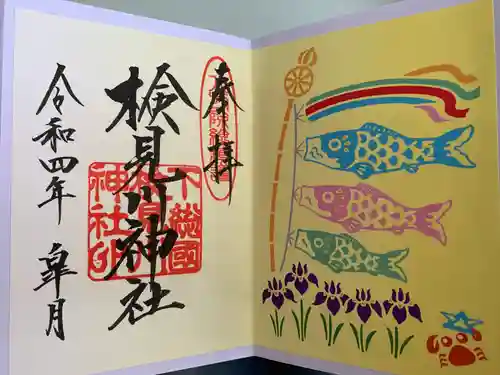 奉拝
検見川神社
令和四年 皐月
下総國
神社印